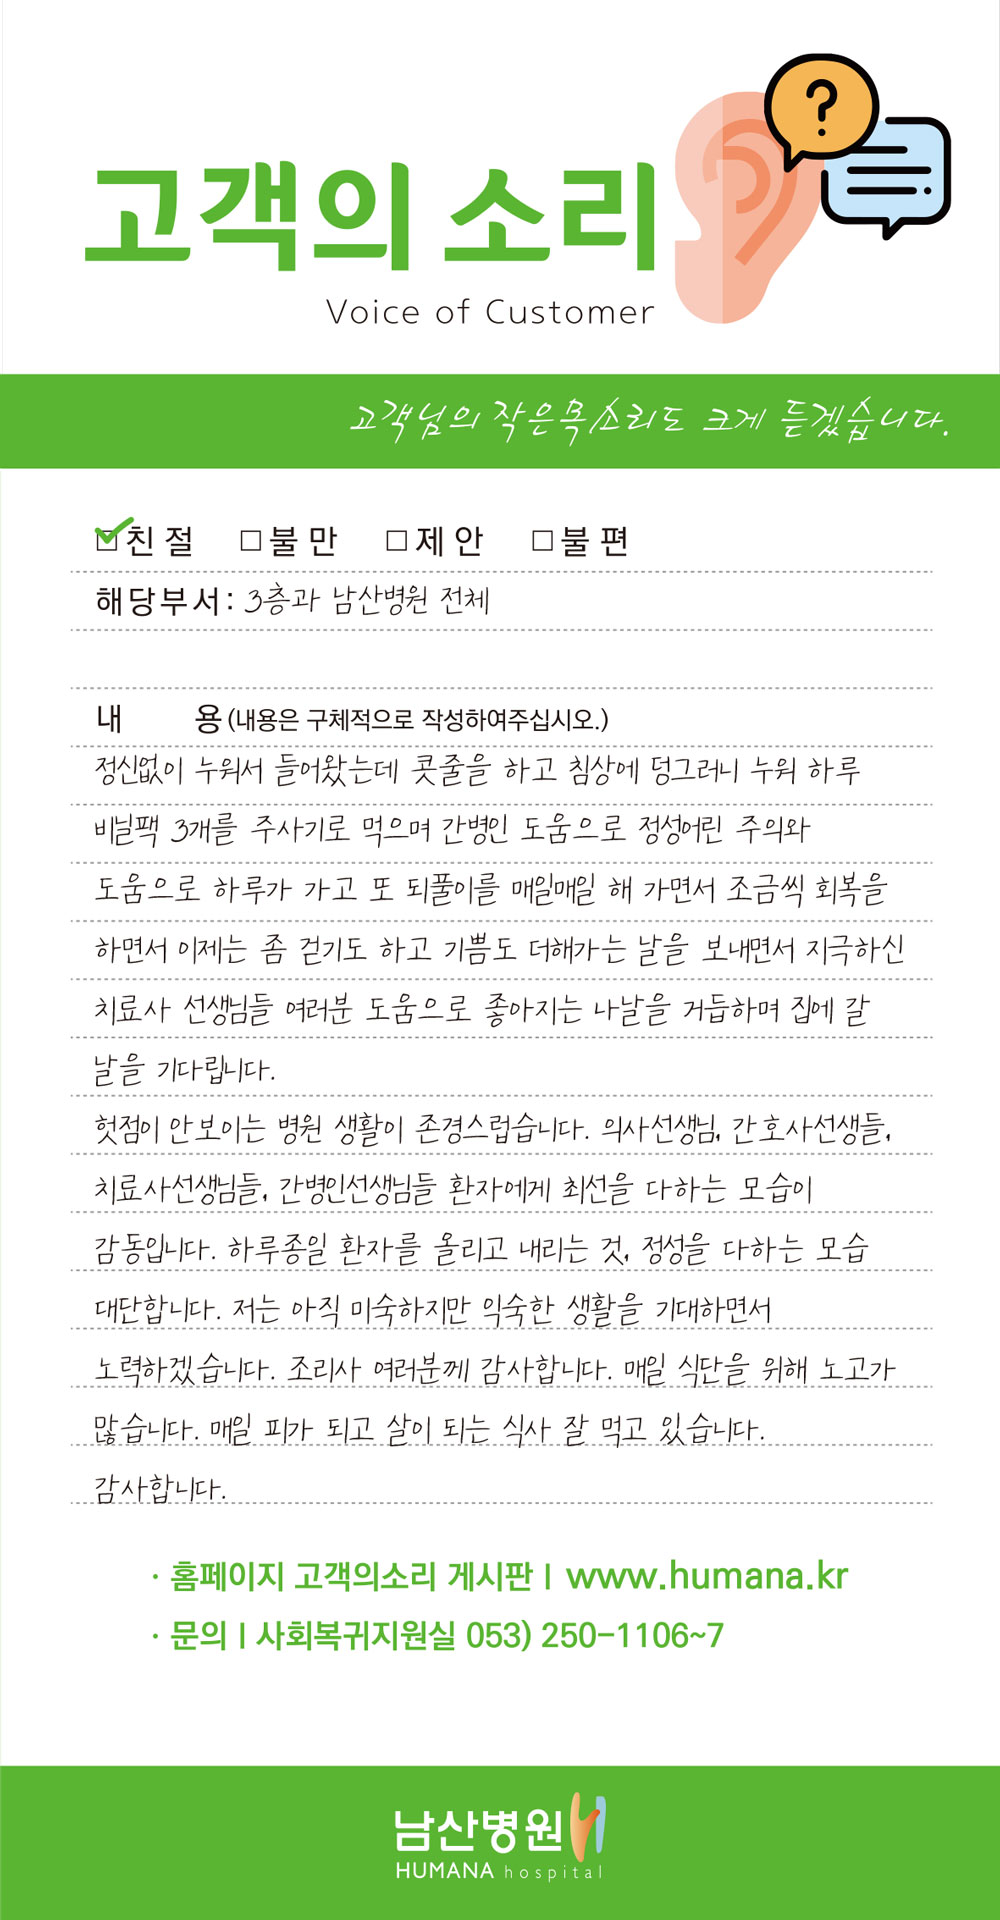 고객의 소리
?
Voice of Customer
고객님의 작은목소리도 크게 듣겠습니다.
친 절 불 만 제 안 불 편
해당부서: 3층과 남산병원 전체
내 용(내용은 구체적으로 작성하여주십시오.)
정신없이 누워서 들어왔는데 콧줄을 하고 침상에 덩그러니 누워 하루
비닐팩 3개를 주사기로 먹으며 간병인 도움으로 정성어린 주의와
도움으로 하루가 가고 또 되풀이를 매일매일 해 가면서 조금씩 회복을
하면서 이제는 좀 걷기도 하고 기쁨도 더해가는 날을 보내면서 지극하신
치료사 선생님들 여러분 도움으로 좋아지는 나날을 거듭하며 집에 갈
날을 기다립니다.
헛점이 안보이는 병원 생활이 존경스럽습니다. 의사선생님, 간호사선생들,
치료사선생님들, 간병인선생님들 환자에게 최선을 다하는 모습이
감동입니다. 하루종일 환자를 올리고 내리는 것, 정성을 다하는 모습
대단합니다. 저는 아직 미숙하지만 익숙한 생활을 기대하면서
노력하겠습니다. 조리사 여러분께 감사합니다. 매일 식단을 위해 노고가
많습니다. 매일 피가 되고 살이 되는 식사 잘 먹고 있습니다.
감사합니다.
· 홈페이지 고객의소리 게시판 | www.humana.kr
· 문의 | 사회복귀지원실 053) 250-1106~7
남산병원
HUMANA hospital